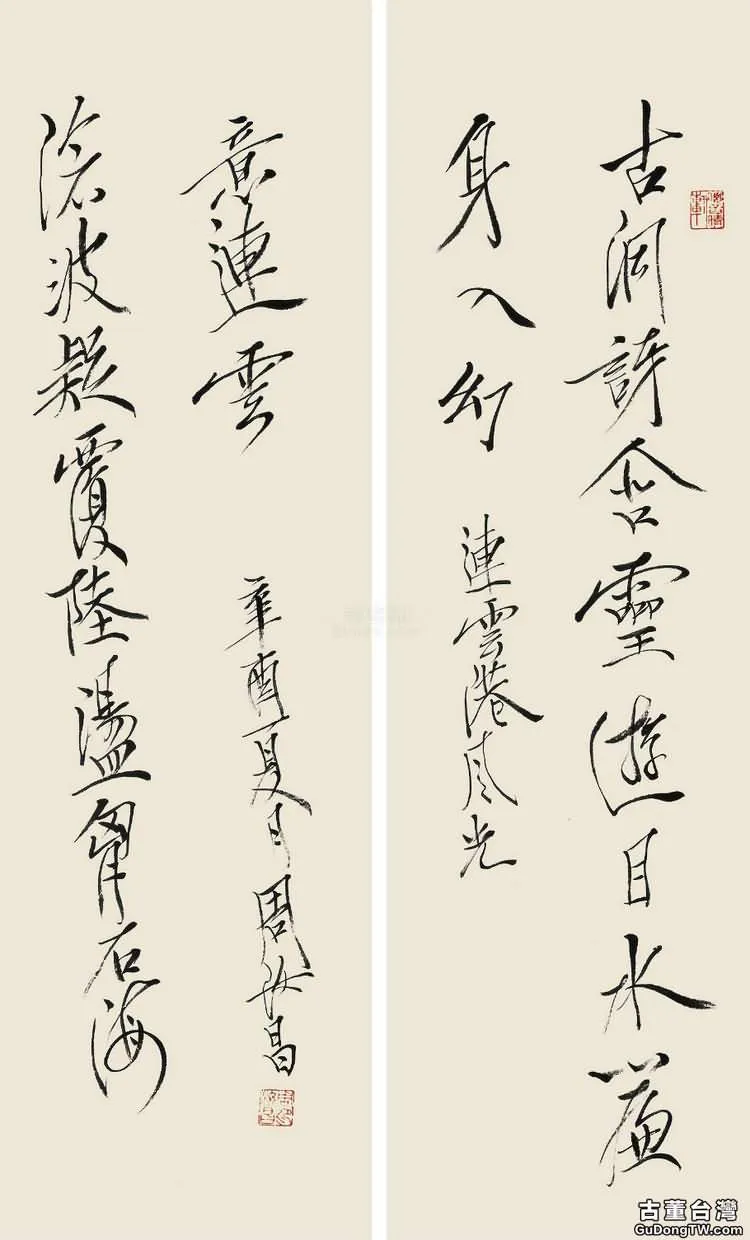 古洞訝含靈遊目水簾
身入幻
連雲港風光
滄波疑覆陸盪胷石海
意連雲
辛酉夏月周汝昌
古董台灣
GuDongTW.com